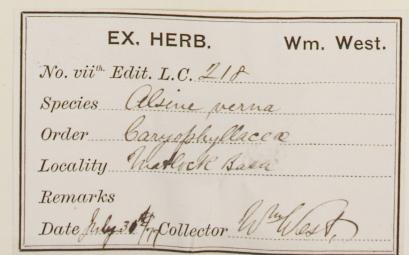 EX. HERB. Wm. West.
No. viith. Edit. L.C. 218
Species Alsine verna
Order Caryophyllaceæ
Locality Matlock Bath
Remarks
Date July Collector Wm West,